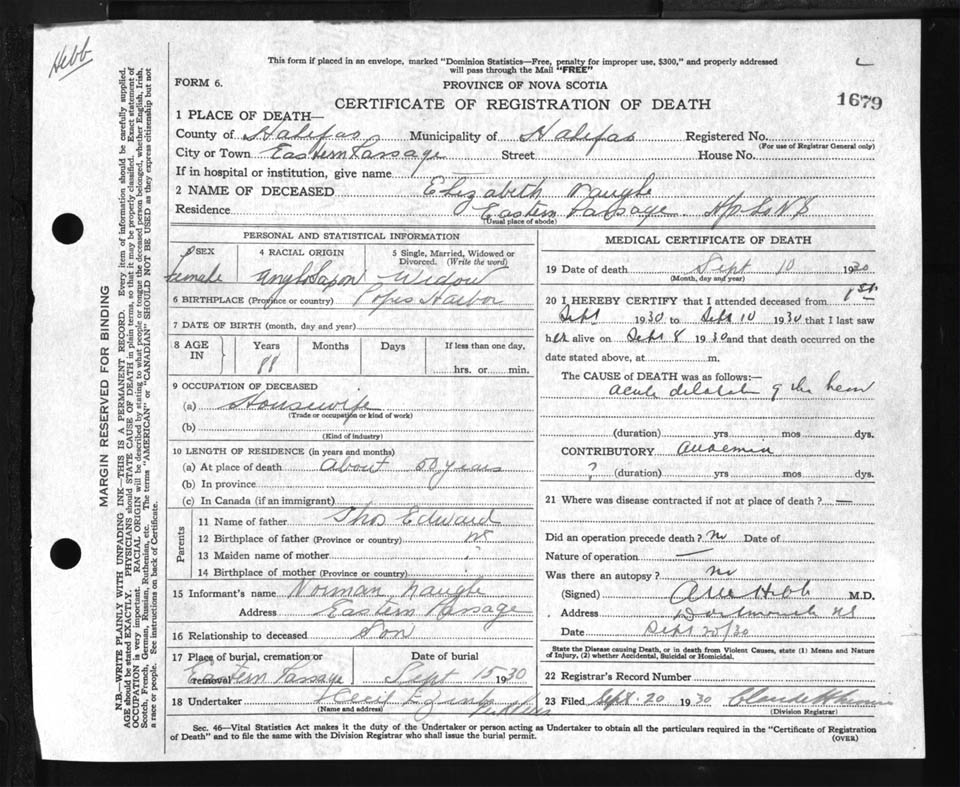 Hebb
This form if placed in an envelope, marked "Dominion Statistics—Free, penalty for improper use, $300," and properly addressed
will pass through the Mail "FREE"
FORM 6.
PROVINCE OF NOVA SCOTIA
CERTIFICATE OF REGISTRATION OF DEATH
1679
1 PLACE OF DEATH—
County of Halifax Municipality of Halifax Registered No.
(For use of Registrar General only)
City or Town Eastern Passage Street House No.
If in hospital or institution, give name
2 NAME OF DECEASED Elizabeth Naugle
Residence Eastern Passage
(Usual place of abode)
PERSONAL AND STATISTICAL INFORMATION
3 SEX 4 RACIAL ORIGIN 5 Single, Married, Widowed or
Divorced. (Write the word)
female Anglo Saxon Widow
6 BIRTHPLACE (Province or country) Popes Harbor
7 DATE OF BIRTH (month, day and year)
8 AGE IN Years Months Days If less than one day,
88 hrs. or min.
9 OCCUPATION OF DECEASED
(a) Housewife
(Trade or occupation or kind of work)
(b)
(Kind of industry)
10 LENGTH OF RESIDENCE (in years and months)
(a) At place of death About 50 years
(b) In province
(c) In Canada (if an immigrant)
Parents
11 Name of father Thos Edward
12 Birthplace of father (Province or country) NS
13 Maiden name of mother
14 Birthplace of mother (Province or country)
15 Informant's name Norman Naugle
Address Eastern Passage
16 Relationship to deceased Son
17 Place of burial, cremation or removal Date of burial
Eastern Passage Sept 15 1930
18 Undertaker Cecil E
(Name and address)
MEDICAL CERTIFICATE OF DEATH
19 Date of death Sept 10 1930
(Month, day and year)
20 I HEREBY CERTIFY that I attended deceased from 1st
Sept 1930 to Sept 10 1930 that I last saw
her alive on Sept 8 1930 and that death occurred on the
date stated above, at m.
The CAUSE of DEATH was as follows:—
acute dilatation of the heart
(duration) yrs mos dys.
CONTRIBUTORY anaemia
? (duration) yrs mos dys.
21 Where was disease contracted if not at place of death? —
Did an operation precede death? no Date of
Nature of operation —
Was there an autopsy? no
(Signed) Hebb M.D.
Address Dartmouth NS
Date Sept 20/30
State the Disease causing Death, or in death from Violent Causes, state (1) Means and Nature
of Injury, (2) whether Accidental, Suicidal or Homicidal.
22 Registrar's Record Number
23 Filed Sept 20 1930
(Division Registrar)
Sec. 46—Vital Statistics Act makes it the duty of the Undertaker or person acting as Undertaker to obtain all the particulars required in the "Certificate of Registration
of Death" and to file the same with the Division Registrar who shall issue the burial permit.
(OVER)
MARGIN RESERVED FOR BINDING
N.B.—WRITE PLAINLY WITH UNFADING INK—THIS IS A PERMANENT RECORD. Every item of information should be carefully supplied.
AGE should be stated EXACTLY. PHYSICIANS should STATE CAUSE OF DEATH in plain terms, so that it may be properly classified. Exact statement of
OCCUPATION is very important. RACIAL ORIGIN will be described by stating to what people or tongue the deceased person belonged, whether English, Irish,
Scotch, French, German, Russian, Ruthenian, etc. The terms "AMERICAN" or "CANADIAN" SHOULD NOT BE USED as they express citizenship but not
a race or people. See instructions on back of Certificate.